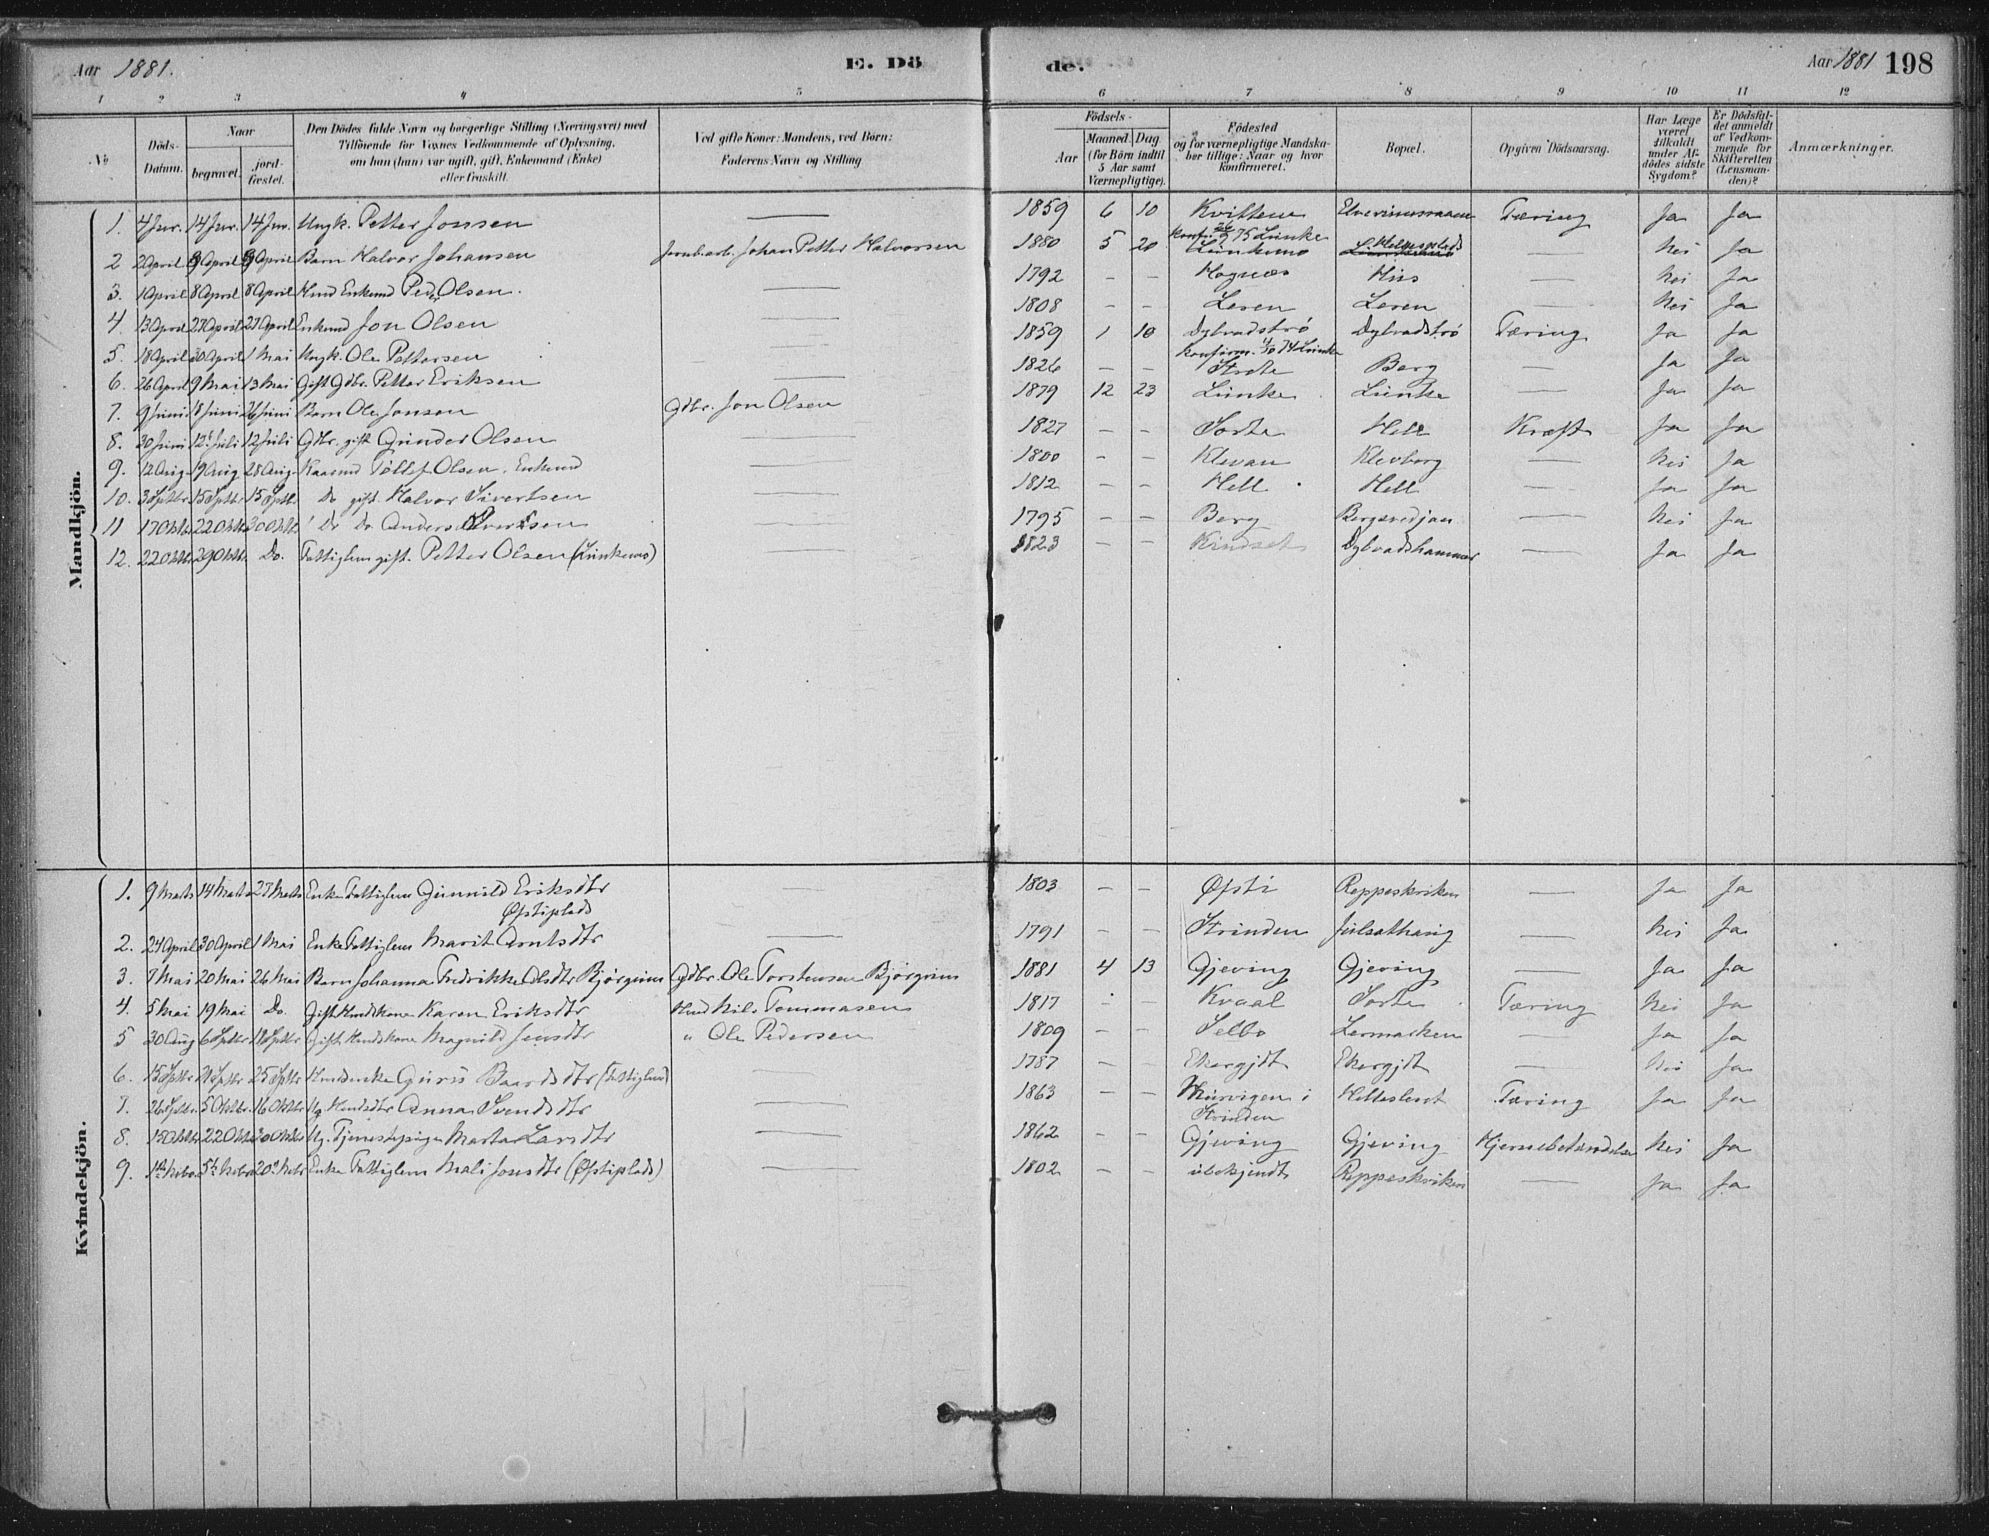 Aar 1881.
E. Dö
de.
Aar 1881
198
1 2 3 4 5 6 7 8 9 10 11 12
№
Döds-Datum.
Naar
begravet.
jordfæstet.
Den Dödes fulde Navn og borgerlige Stilling (Næringsvei) med
Tilföiende for Voxnes Vedkommende af Oplysning,
om han (hun) var ugift, gift, Enkemand (Enke)
eller fraskilt.
Ved gifte Koner: Mandens, ved Börn:
Faderens Navn og Stilling
Födsels-
Aar
Maaned. Dag.
(for Börn indtil
5 Aar samt
Værnepligtige).
Födested
og for værnepligtige Mandska-
ber tillige: Naar og hvor
konfirmeret.
Bopæl.
Opgiven Dödsaarsag.
Har Læge
været
tilkaldt
under Af-
dödes sidste
Sygdom?
Er Dödsfal-
det anmeldt
af Vedkom-
mende for
Skifteretten
(Lensman-
den)?
Anmærkninger.
Mandkjön.
1. 4 Jnr. 14 Jnr. 14 Jnr. Ungk. Petter Jonsen — 1859 6 10 Kvitten Tæring Ja Ja
konf. 75 Lånke
2 2 April 9 April 9 April Barn Halvor Johansen Jernb.arb. Johan Petter Halvorsen 1880 5 20 Lånkemo Hellesplads — Nei Ja
3. 1 April 8 April 8 April Hmd Enkemd Peder Olsen. — 1792 — — Hognæs Hiis — Nei Ja
4 13 April 27 April 27 April Enkemd Jon Olsen — 1808 — — Leren Leren — Nei Ja
5. 18 April 30 April 1 Mai Ungk. Ole Pettersen — 1859 1 10 Dybvadstrø Dybvadstrø Tæring Ja Ja
konfirm. 74 Lånke
6. 26 April 9 Mai 13 Mai Gift Gdbr. Petter Eriksen — 1826 — — Berg — Ja Ja
7. 9 Juni 18 Juni 26 Juni Barn Ole Jonsen Gdbr. Jon Olsen 1879 12 23 Lånke Lånke — Ja Ja
8. 30 Juni 12 Juli 12 Juli Gdbr. gift Gunder Olsen — 1827 — — Sorte Hell Kræft Ja Ja
9. 12 Aug. 19 Aug. 28 Aug. Kaarmd Tollef Olsen, Enkemd — 1800 — — Klevan Klevborg — Nei Ja
10. 3 Sptbr. 15 Sptbr 15 Sptbr Do gift. Halvor Sivertsen — 1812 — — Hell Hell — Ja Ja
11 17 Oktbr 22 Oktbr 30 Oktbr Do Do. Anders Iversen — 1795 — — Berg Bergsvedjan — Nei Ja
12. 22 Oktbr 29 Oktbr. Do. Fattiglem gift. Petter Olsen (Lånkemo) 1823 — — Kindset Dybvadshammer — Ja Ja
Kvindekjön.
1. 9 Marts 14 Marts 27 Marts Enke Fattiglem Gunnild Eriksdtr — 1803 — — Øfsti Reppeskviken — Ja Ja
Øfstiplads
2. 24 April 30 April 1 Mai Enke Fattiglem Marit Arntsdtr — 1791 — — Strinden — Nei Ja
3. 7 Mai 20 Mai 26 Mai Barn Johanna Fredrikke Olsdtr Bjørgum Gdbr. Ole Torstensen Bjørgum 1881 4 13 Gjeving Gjeving — Ja Ja
4. 5 Mai 19 Mai Do. Gift Hmdskone Karen Eriksdtr Hmd Nils Tommasen 1817 — — Kvaal Sorte Tæring Nei Ja
5 30 Aug 6 Sptbr 18 Sptbr Gift Hmdskone Magnild Jensdtr " Ole Pedersen 1809 — — Selbo Lermarken — Ja Ja
6. 15 Sptbr 21 Sptbr 25 Sptbr Hmdenke Guru Baardsdtr (Fattiglem) — 1787 — — Ekergjdt Ekergjdt — Nei Ja
7. 26 Sptbr. 5 Oktbr. 16 Oktbr Ug Hmdsdtr Anna Svendsdtr — 1863 — — Murvigen i Tæring Ja Ja
Strinden
8. 15 Oktbr 22 Oktbr 30 Oktbr Ug. Tjenestepige Marta Larsdtr — 1862 — — Gjeving Gjeving Hjernebetændelse Nei Ja
9. 1ste Novbr. 5te Novbr 20de Novbr Enke Fattiglem Mali Jonsdtr (Øfstiplads) — 1802 — — ubekjendt Reppeskviken — Ja Ja